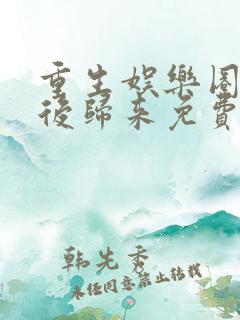 重生娛樂圈
後歸來免費
韩先秀
未经同意禁止转载